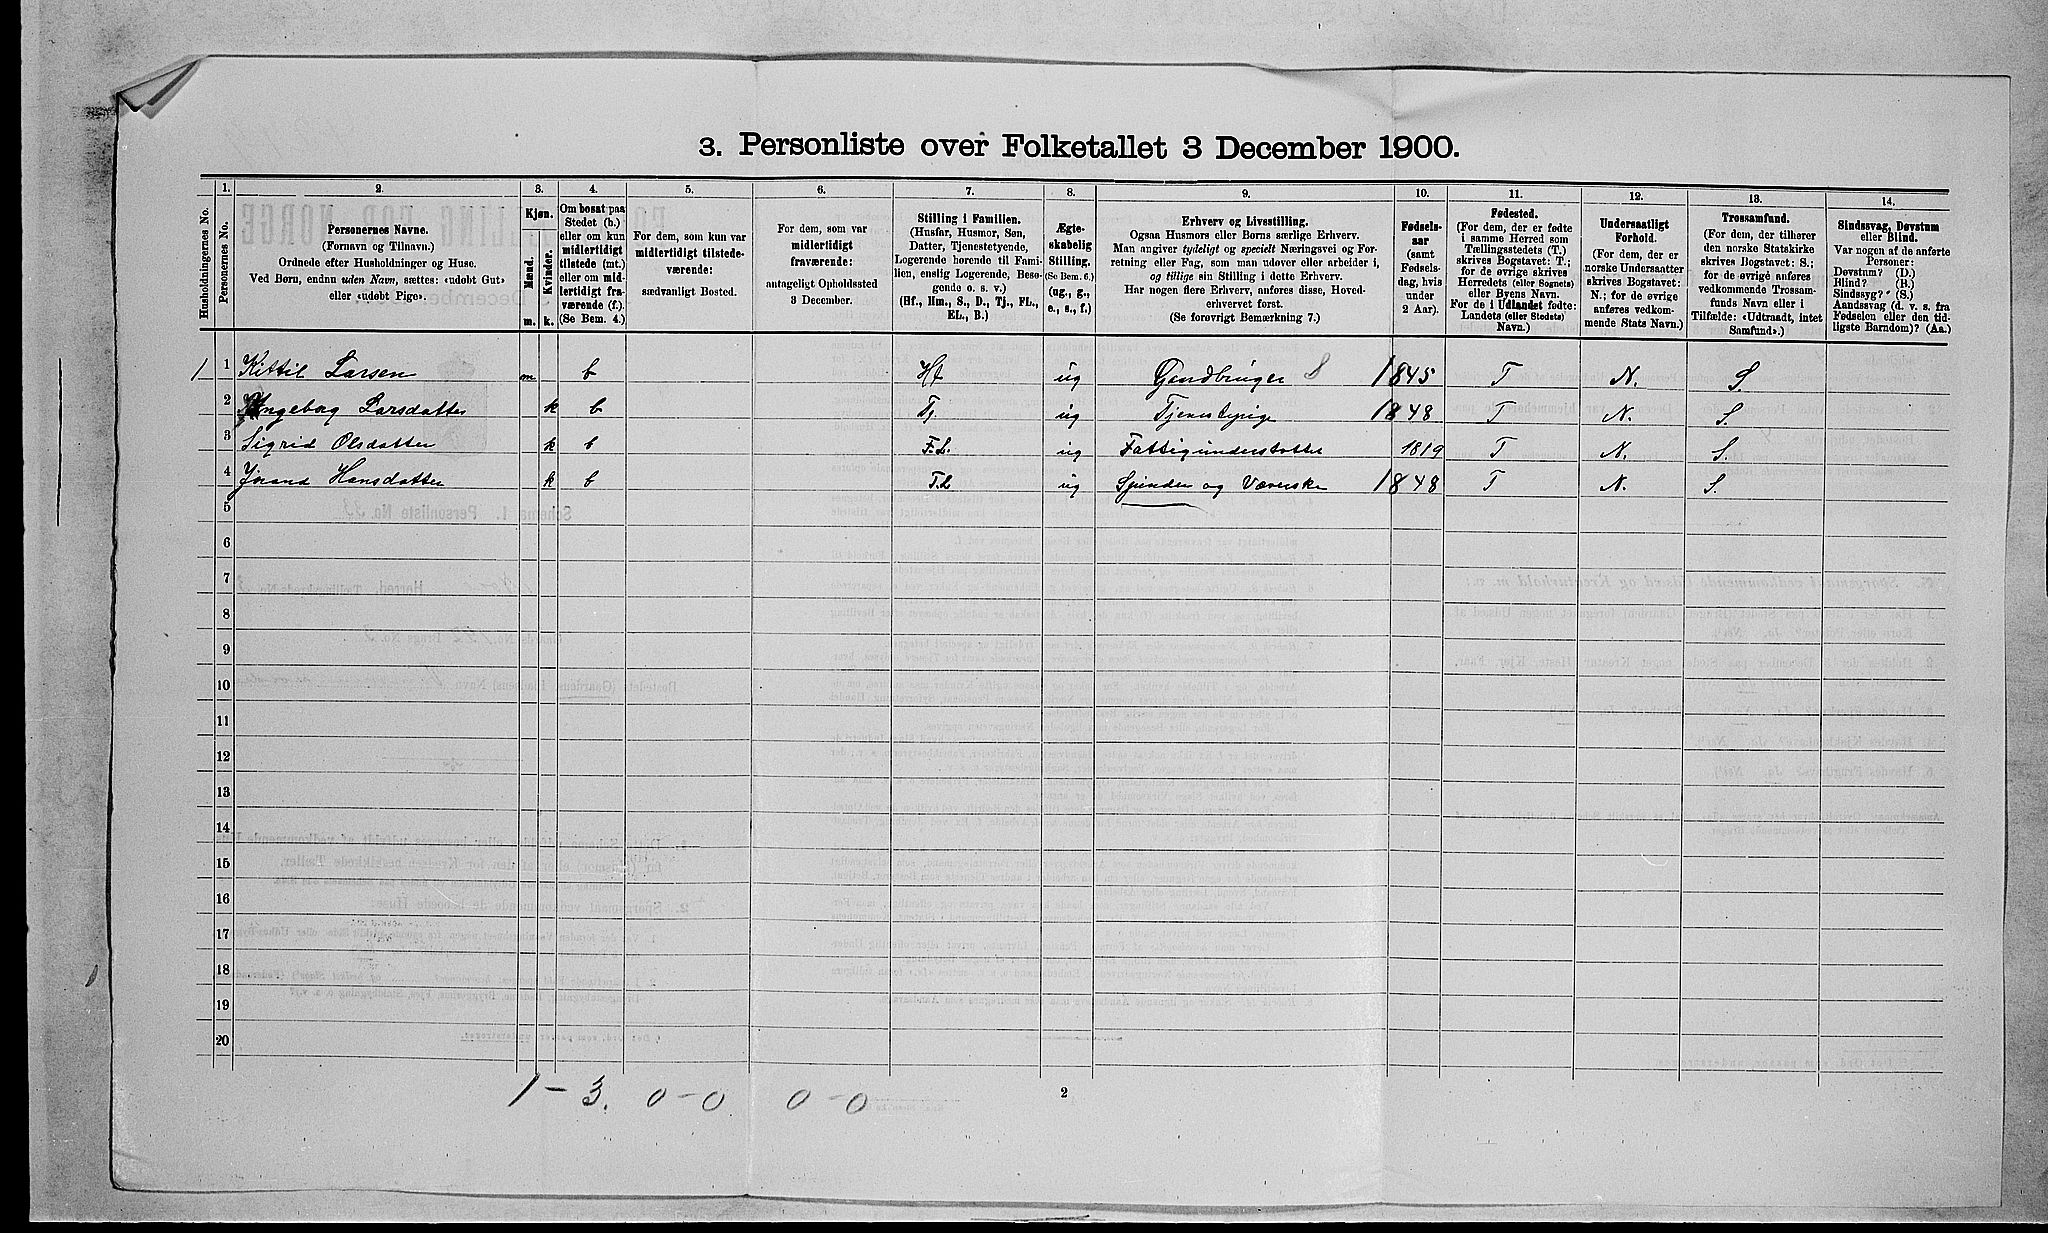 3. Personliste over Folketallet 3 December 1900.
Husholdningernes No.
1.
Personernes No.
2.
Personernes Navne.
(Fornavn og Tilnavn.)
Ordnede efter Husholdninger og Huse.
Ved Børn, endnu uden Navn, sættes: «udøbt Gut»
eller «udøbt Pige».
3.
Kjøn.
Mænd.
m.
Kvinder.
k.
4.
Om bosat paa
Stedet (b.)
eller om kun
midlertidigt
tilstede (mt.)
eller om mid-
lertidigt fra-
værende (f.)
(Se Bem. 4.)
5.
For dem, som kun var
midlertidigt tilstede-
værende:
sædvanligt Bosted.
6.
For dem, som var
midlertidigt
fraværende:
antageligt Opholdssted
3 December.
7.
Stilling i Familien.
(Husfar, Husmor, Søn,
Datter, Tjenestetyende,
Logerende hørende til Fami-
lien, enslig Logerende, Besø-
gende o. s. v.)
(Hf., Hm., S., D., Tj., FL.,
EL., B.)
8.
Ægte-
skabelig
Stilling.
(Se Bem. 6.)
(ug., g.,
e., s., f.)
9.
Erhverv og Livsstilling.
Ogsaa Husmors eller Børns særlige Erhverv.
Man angiver tydeligt og specielt Næringsvei og For-
retning eller Fag, som man udøver eller arbeider i,
og tillige sin Stilling i dette Erhverv.
Har nogen flere Erhverv, anføres disse, Hoved-
erhvervet først.
(Se forøvrigt Bemærkning 7.)
10.
Fødsels-
aar
(samt
Fødsels-
dag, hvis
under
2 Aar).
11.
Fødested.
(For dem, der er fødte
i samme Herred som
Tællingsstedets (T.)
skrives Bogstavet: T.;
for de øvrige skrives
Herredets (eller Sognets)
eller Byens Navn.
For de i Udlandet fødte:
Landets (eller Stedets)
Navn.)
12.
Undersaatligt
Forhold.
(For dem, der er
norske Undersaatter
skrives Bogstavet:
N.; for de øvrige
anføres vedkom-
mende Stats Navn.)
13.
Trossamfund.
(For dem, der tilhører
den norske Statskirke
skrives Bogstavet: S.;
for de øvrige anføres
vedkommende Trossam-
funds Navn eller i
Tilfælde: «Udtraadt, intet
Samfund».)
14.
Sindssvag, Døvstum
eller Blind.
Var nogen af de anførte
Personer:
Døvstum? (D.)
Blind? (B.)
Sindssyg? (S.)
Aandssvag (d. v. s. fra
Fødselen eller den tid-
ligste Barndom)? (Aa.)
1 1 Kittil Larsen m b Hf ug Gaardbruger 8 1845 T N. S.
2 Ingeborg Larsdatter k b Tj ug Tjenestepige 1848 T N. S.
3 Sigrid Olsdatter k b F.L. ug Fattigunderstøttet 1819 T N. S.
4 Jorand Hansdatter k b ug Spinder og Væverske 1848 T N. S.
5
6
7
8
9
10
11
12
13
14
15
16
17
18
19
20
1 - 3. 0 - 0 0 - 0
2